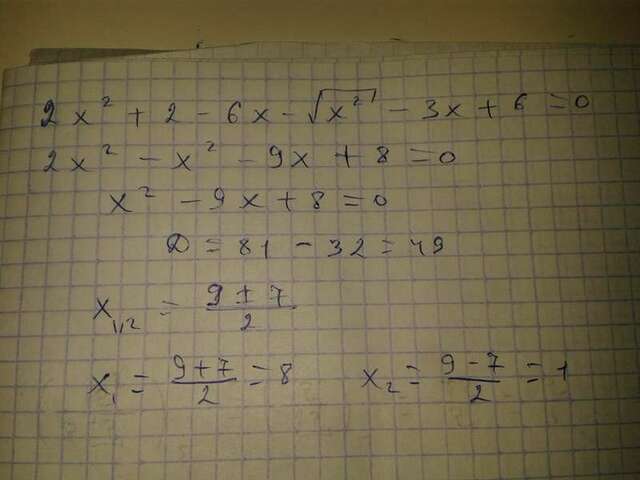 2x² + 2 - 6x - √x² - 3x + 6 = 0
2x² - x² - 9x + 8 = 0
x² - 9x + 8 = 0
D = 81 - 32 = 49
x₁,₂ = (9 ± 7)/2
x₁ = (9+7)/2 = 8 x₂ = (9-7)/2 = 1